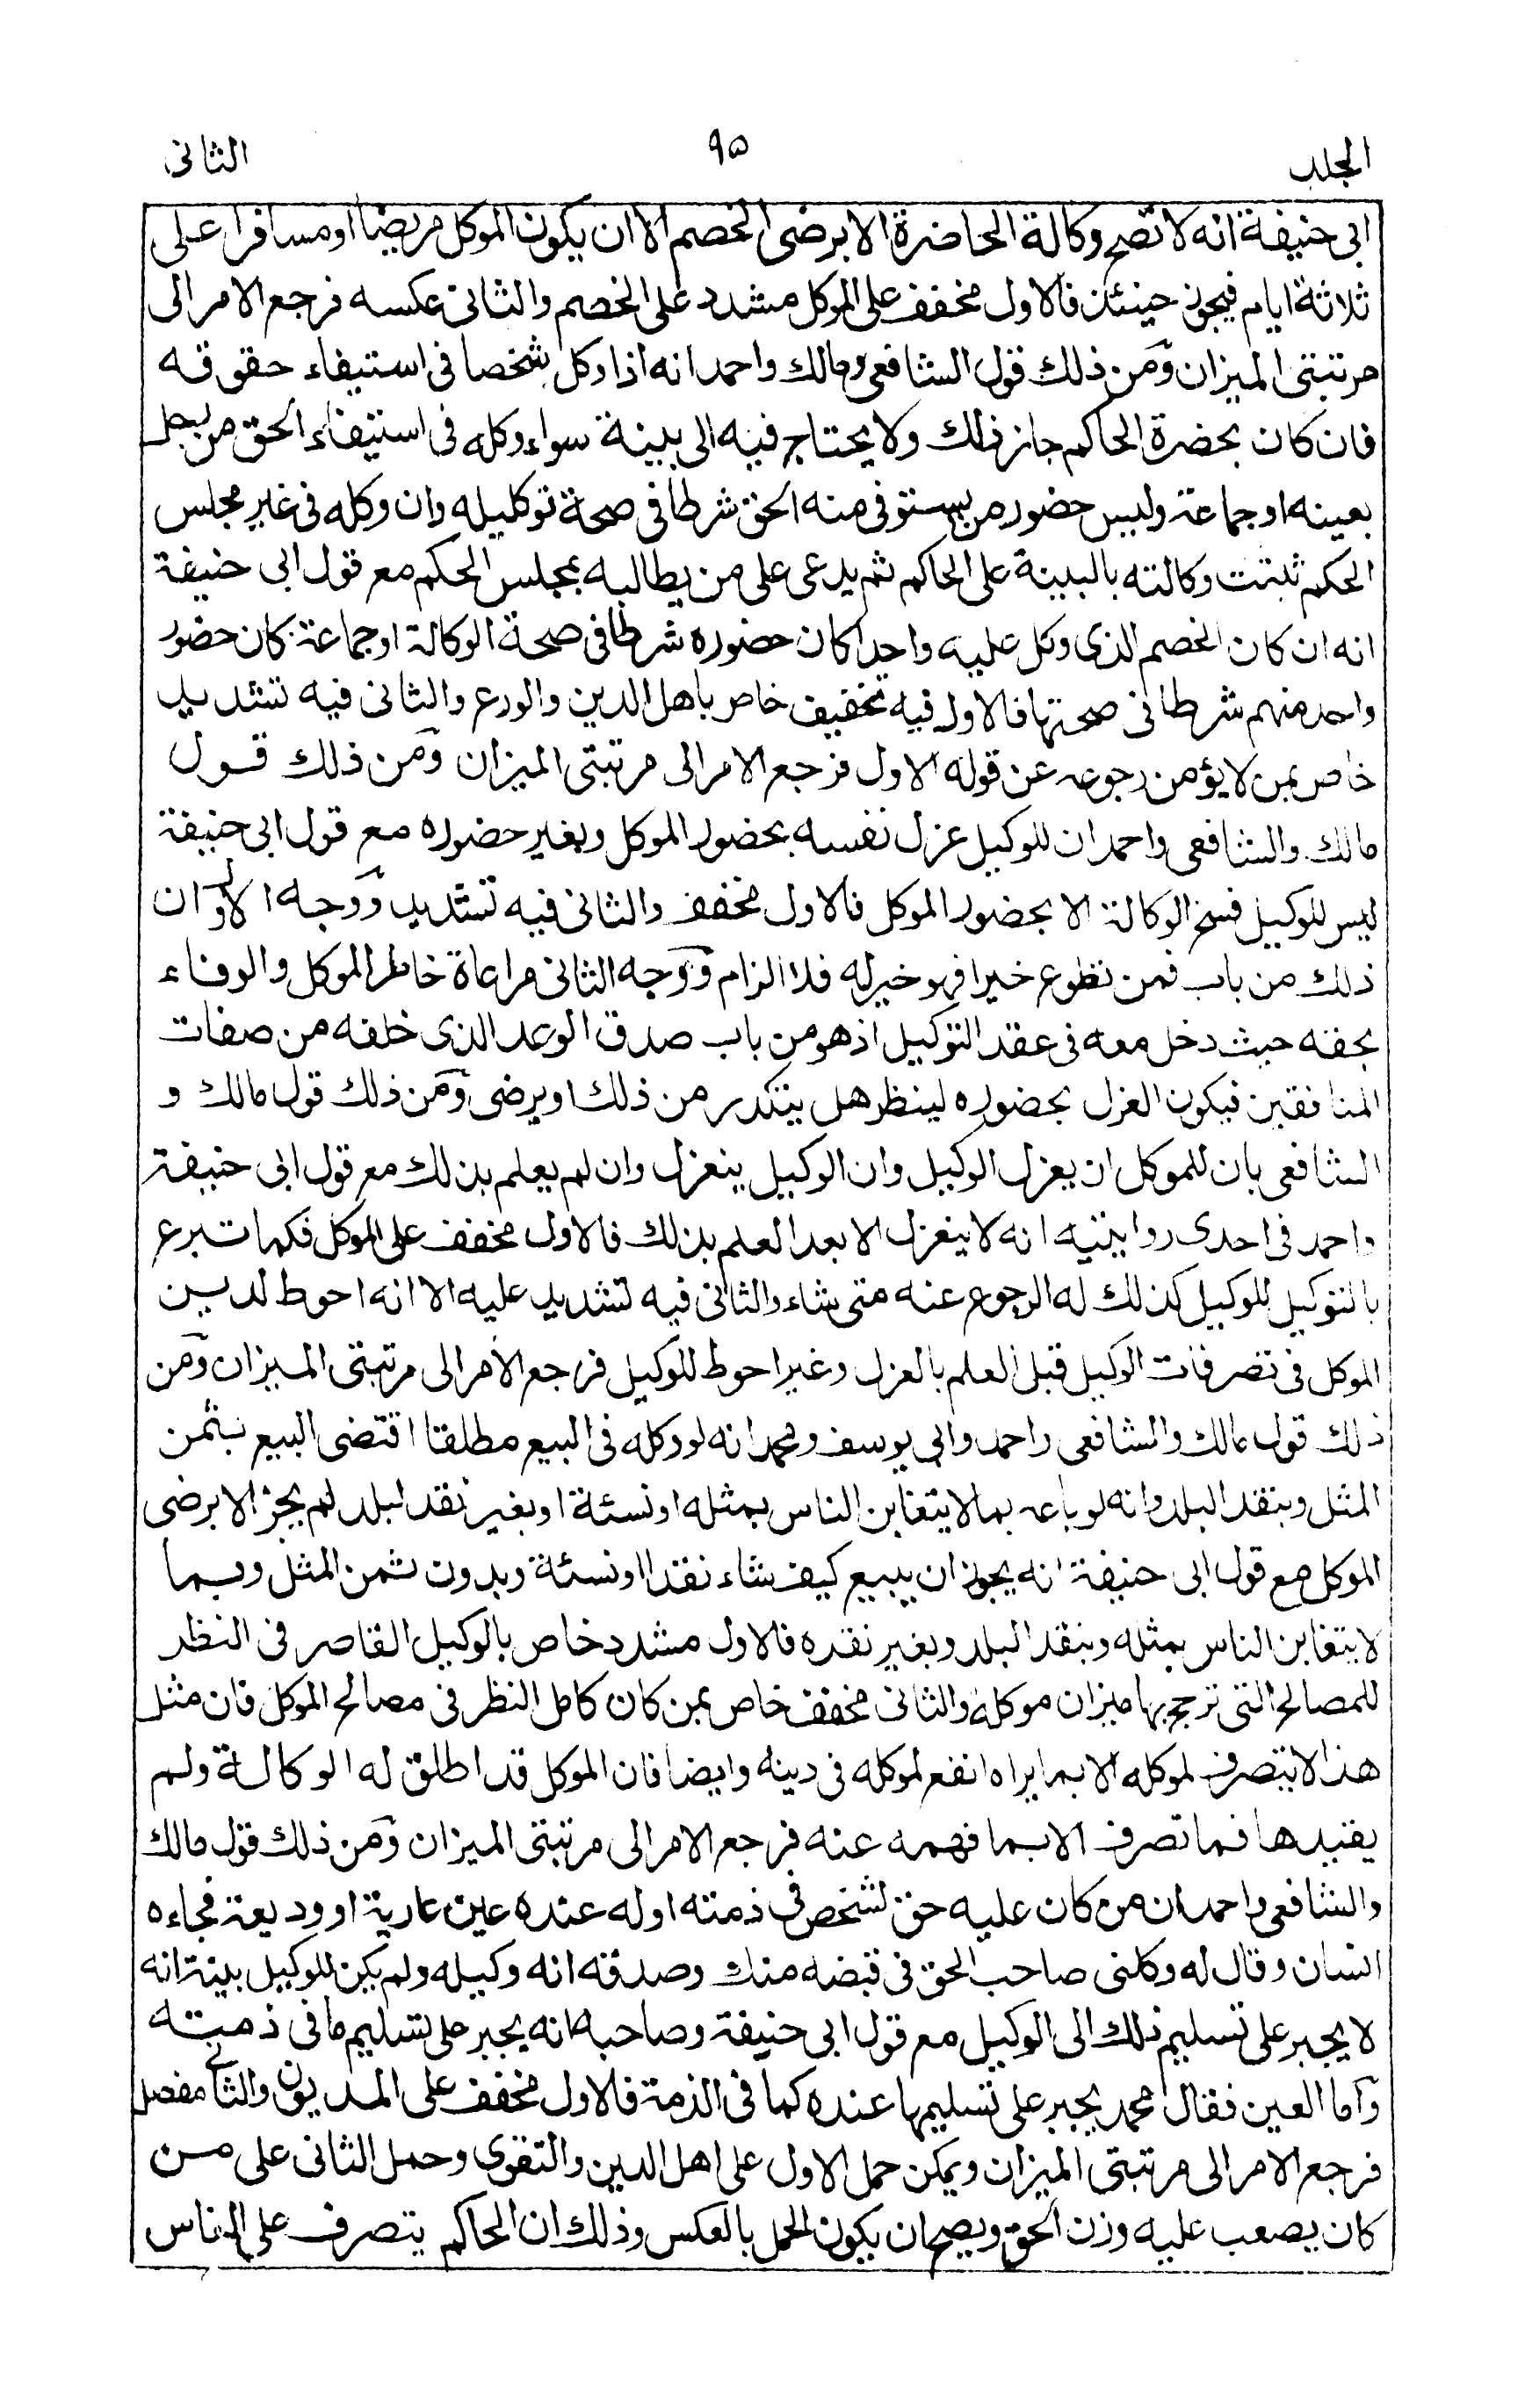 المجلد ٩٥ الثانى
ابى حنيفة انه لا تصح وكالة الحاضرة الا برضى الخصم الا ان يكون الموكل مريضا او مسافرا على
ثلاثة ايام فيجوز حينئذ فالاول مخفف على الموكل مشدد على الخصم والثانى عكسه فرجع الامر الى
مرتبتى الميزان ومن ذلك قول الشافعى ومالك واحمد انه اذا وكل شخصا فى استيفاء حقوقه
فان كان بحضرة الحاكم جاز ذلك ولا يحتاج فيه الى بينة سواء وكله فى استيفاء الحق من رجل
بعينه او جماعة وليس حضور من يستوفى منه الحق شرطا فى صحة توكليله وان وكله فى غير مجلس
الحكم ثبتت وكالته بالبينة على الحاكم ثم يدعى على من يطالبه بمجلس الحكم مع قول ابى حنيفة
انه ان كان الخصم الذى وكل عليه واحدا كان حضوره شرطا فى صحة الوكالة او جماعة كان حضور
واحد منهم شرطا فى صحتها فالاول فيه تخفيف خاص باهل الدين والورع والثانى فيه تشديد
خاص بمن لا يؤمن رجوعه عن قوله الاول فرجع الامر الى مرتبتى الميزان ومن ذلك قول
مالك والشافعى واحمد ان للوكيل عزل نفسه بحضور الموكل وبغير حضوره مع قول ابى حنيفة
ليس للوكيل فسخ الوكالة الا بحضور الموكل فالاول مخفف والثانى فيه تشديد ووجه الاول ان
ذلك من باب فمن تطوع خيرا فهو خير له فلا الزام ووجه الثانى مراعاة خاطر الموكل والوفاء
بحقه حيث دخل معه فى عقد التوكيل اذ هو من باب صدق الوعد الذى خلفه من صفات
المنافقين فيكون العزل بحضوره لينظر هل يتكدر من ذلك او يرضى ومن ذلك قول مالك و
الشافعى بان للموكل ان يعزل الوكيل وان الوكيل ينعزل وان لم يعلم بذلك مع قول ابى حنيفة
واحمد فى احدى روايتيه انه لا ينعزل الا بعد العلم بذلك فالاول مخفف على الموكل فكما تبرع
بالتوكيل للوكيل كذلك له الرجوع عنه متى شاء والثانى فيه تشديد عليه الا انه احوط لدين
الموكل فى تصرفات الوكيل قبل العلم بالعزل وغير احوط للوكيل فرجع الامر الى مرتبتى الميزان ومن
ذلك قول مالك والشافعى واحمد وابى يوسف ومحمد انه لو وكله فى البيع مطلقا اقتضى البيع بثمن
المثل وبنقد البلد وانه لو باعه بما لا يتغابن الناس بمثله او نسئة او بغير نقد البلد لم يجز الا برضى
الموكل مع قول ابى حنيفة انه يجوز ان يبيع كيف شاء نقدا او نسئة وبدون ثمن المثل وبما
لا يتغابن الناس بمثله وبنقد البلد وبغير نقده فالاول مشدد خاص بالوكيل القاصر فى النظر
للمصالح التى ترجح بها ميزان موكله والثانى مخفف خاص بمن كان كامل النظر فى مصالح الموكل فان مثل
هذا لا يتصرف لموكله الا بما يراه انفع لموكله فى دينه وايضا فان الموكل قد اطلق له الوكالة ولم
يقيدها فما تصرف الا بما فهمه عنه فرجع الامر الى مرتبتى الميزان ومن ذلك قول مالك
والشافعى واحمد ان من كان عليه حق لشخص فى ذمته او له عنده عين عارية او وديعة فجاءه
انسان وقال له وكلنى صاحب الحق فى قبضه منك وصدقه انه وكيله ولم يكن للوكيل بينة انه
لا يجبر على تسليم ذلك الى الوكيل مع قول ابى حنيفة وصاحبه انه يجبر على تسليم ما فى ذمته
واما العين فقال محمد يجبر على تسليمها عنده كما فى الذمة فالاول مخفف على المديون والثانى مفصل
فرجع الامر الى مرتبتى الميزان ويمكن حمل الاول على اهل الدين والتقوى وحمل الثانى على من
كان يصعب عليه وزن الحق ويصح ان يكون الحمل بالعكس وذلك ان الحاكم يتصرف على الناس